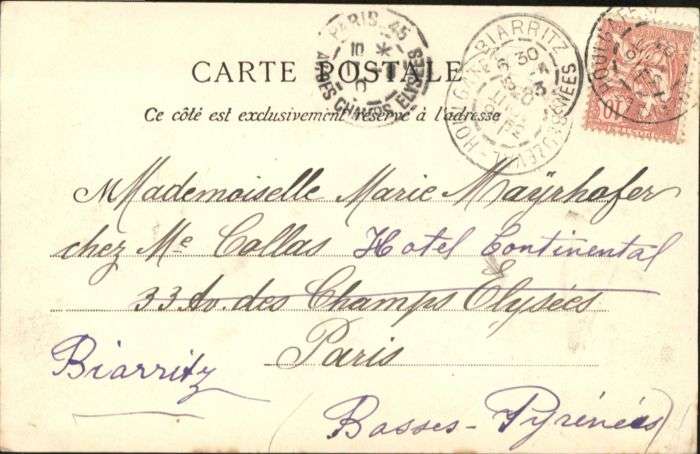 CARTE POSTALE
Ce côté est exclusivement réservé à l'adresse
PARIS 45
AV. DES CHAMPS ELYSEES
BIARRITZ
6 30
10
Mademoiselle Marie Mayrhofer
chez Me Callas Hotel Continental
33 Av. des Champs Elysées
Paris
Biarritz
(Basses-Pyrénées)